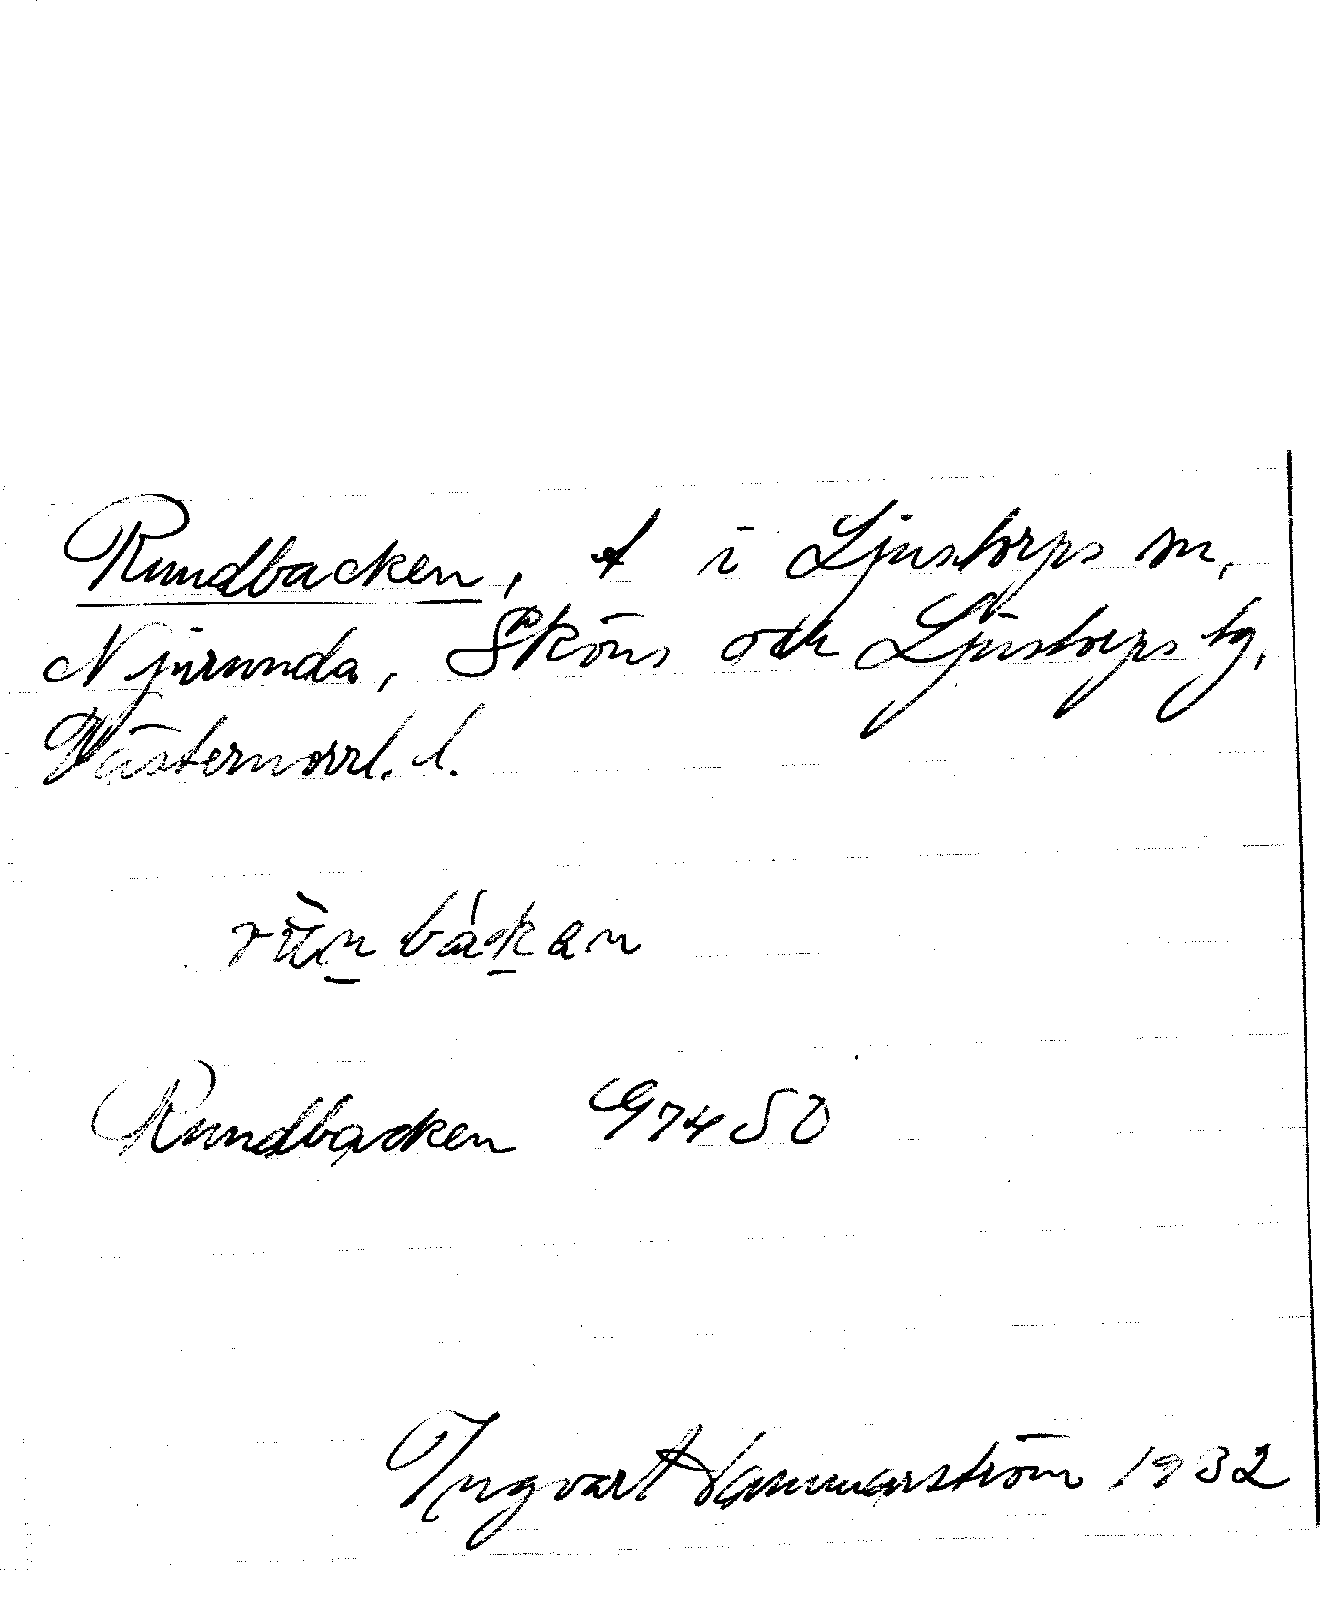 Rundbacken, t i Ljustorps sn,
Njurunda, Sköns och Ljustorps tg,
Västernorrl. l.
Rundbacken G7450
Ingvart Hammarström 1932